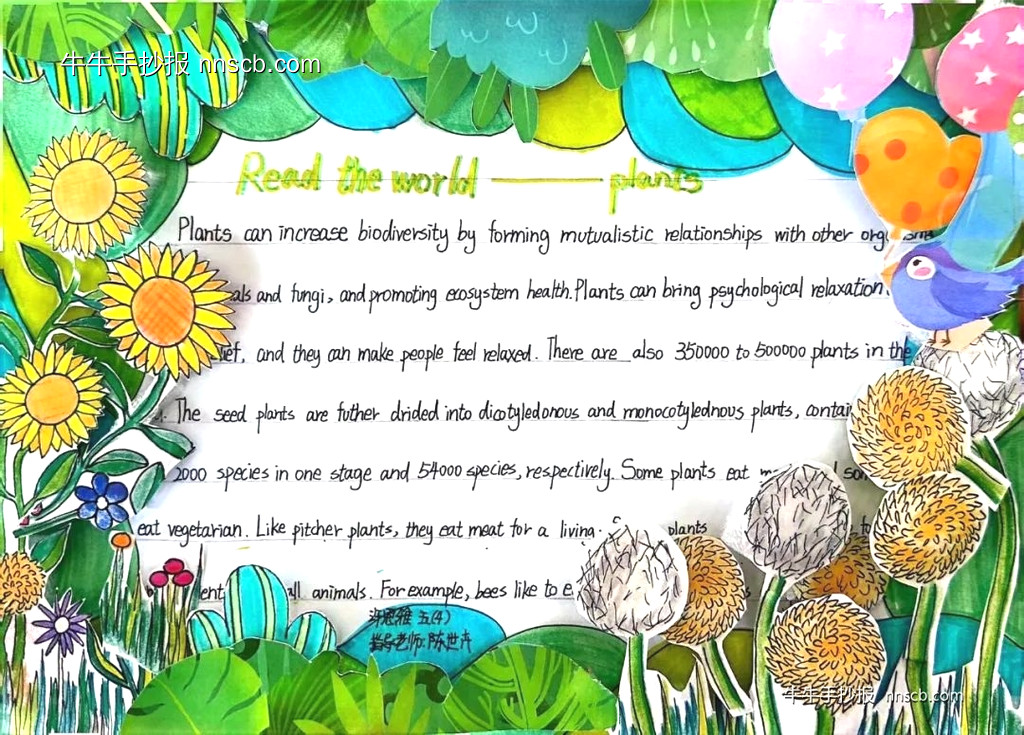 牛牛手抄报 nnscb.com
Read the world —— plants
Plants can increase biodiversity by forming mutualistic relationships with other
and fungi, and promoting ecosystem health. Plants can bring psychological relaxation,
and they can make people feel relaxed. There are also 350000 to 500000 plants in the
The seed plants are futher drided into dicotyledonous and monocotylednous plants,
2000 species in one stage and 54000 species, respectively. Some plants eat
eat vegetarian. Like pitcher plants, they eat meat for a living.
plants
animals. For example, bees like to
五(4)
指导老师:陈世卉
牛牛手抄报 nnscb.com